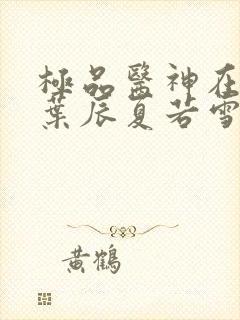 極品醫神在
葉辰夏若雪
黃鶴